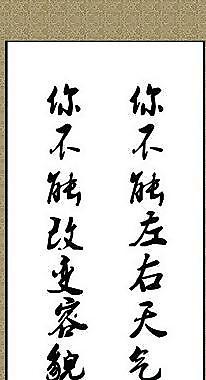 你不能左右天气
你不能改变容貌